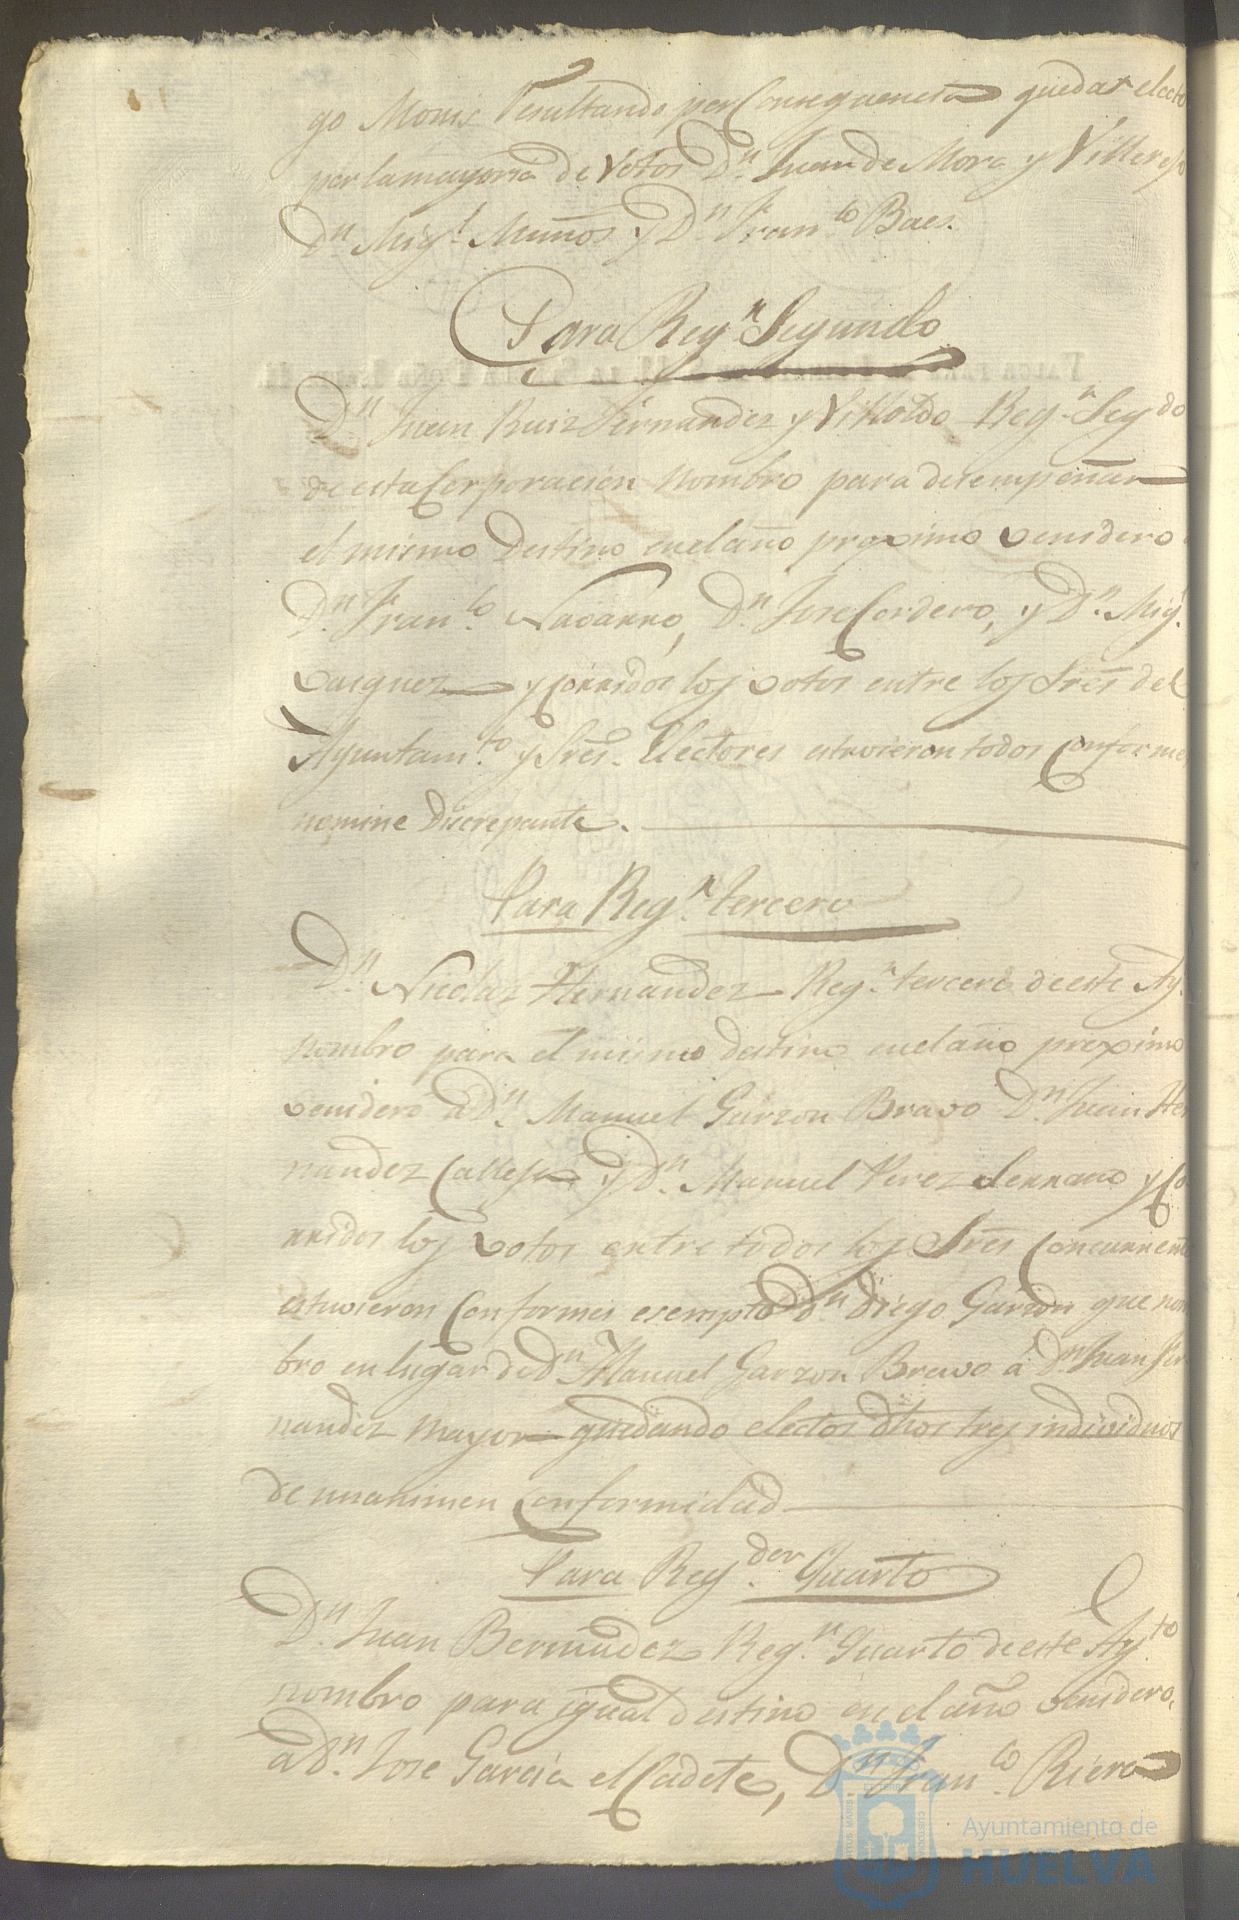 go Monis Resultando por Consequencia quedar electo
por la mayoria de Votos Dn Juan de Mora y Viller
Dn Migl Muños y Dn Franco Baes.
Para Regn Segundo
Dn Juan Ruiz Fernandez y Villoldo Regn Segdo
de esta Corporacion nombro para desempeñar
el mismo Destino en el año proximo venidero
Dn Franco Navarro, Dn Jose Cordero, y Dn Migl
Vasquez y corridos los votos entre los Sres del
Ayuntamto y Sres Electores estuvieron todos conforme
nemine Discrepante.
Para Regn tercero
Dn Nicolas Hernandez Regn tercero de este Ay.
nombro para el mismo destino en el año proximo
venidero a Dn Manuel Garzon Bravo Dn Juan Her
nandez Calleja y Dn Manuel Perez Serrano y Co
rridos los votos entre todos los Sres Concurrent
estuvieron Conformes esempto Dn Diego Garzon que nom
bro en lugar de Dn Manuel Garzon Bravo á Dn Juan Fer
nandez mayor quedando electos dhos tres individuos
de unanimen Conformidad
Para Regdor Quarto
Dn Juan Bermudez Regn Quarto de este Ayto
nombro para igual destino en el año venidero,
a Dn Jose Garcia el Cadete, Dn Franco Riera
Ayuntamiento de
HUELVA